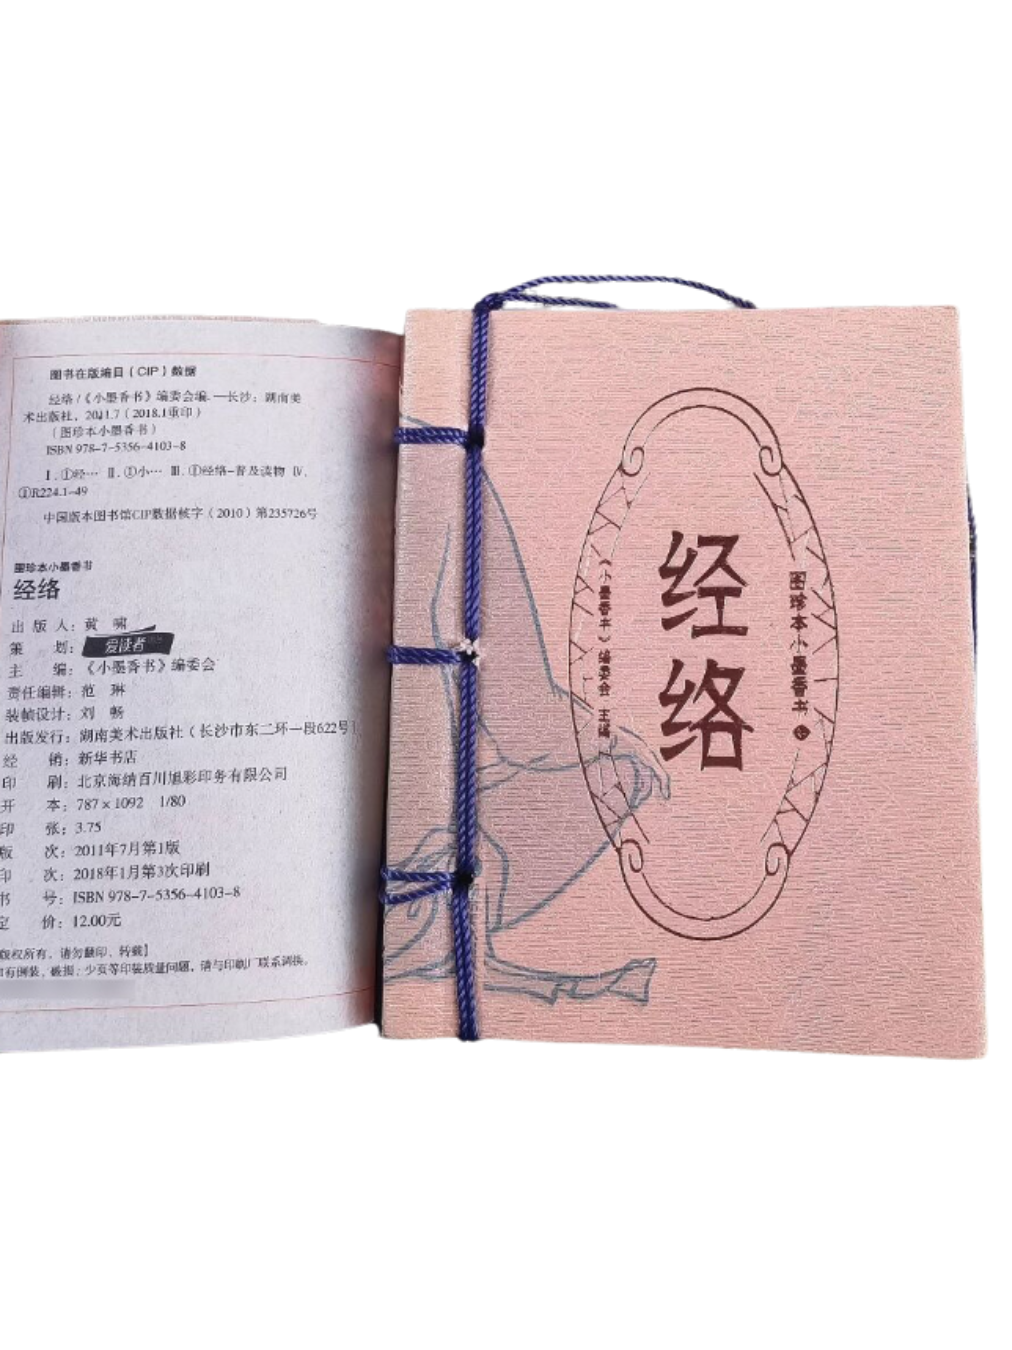 图书在版编目（CIP）数据
经络/《小墨香书》编委会编.—长沙：湖南美
术出版社，2011.7（2018.1重印）
（图珍本小墨香书）
ISBN 978-7-5356-4103-8
Ⅰ.①经… Ⅱ.①小… Ⅲ.①经络-普及读物 Ⅳ.
①R224.1-49
中国版本图书馆CIP数据核字（2010）第235726号
图珍本小墨香书
经络
出 版 人：黄 啸
策 划：爱读者
主 编：《小墨香书》编委会
责任编辑：范 琳
装帧设计：刘 畅
出版发行：湖南美术出版社（长沙市东二环一段622号）
经 销：新华书店
印 刷：北京海纳百川旭彩印务有限公司
开 本：787×1092 1/80
印 张：3.75
版 次：2011年7月第1版
印 次：2018年1月第3次印刷
书 号：ISBN 978-7-5356-4103-8
定 价：12.00元
版权所有，请勿翻印、转载】
如有倒装，破损，少页等印装质量问题，请与印刷厂联系调换。
图珍本小墨香书
经络
《小墨香书》编委会 主编